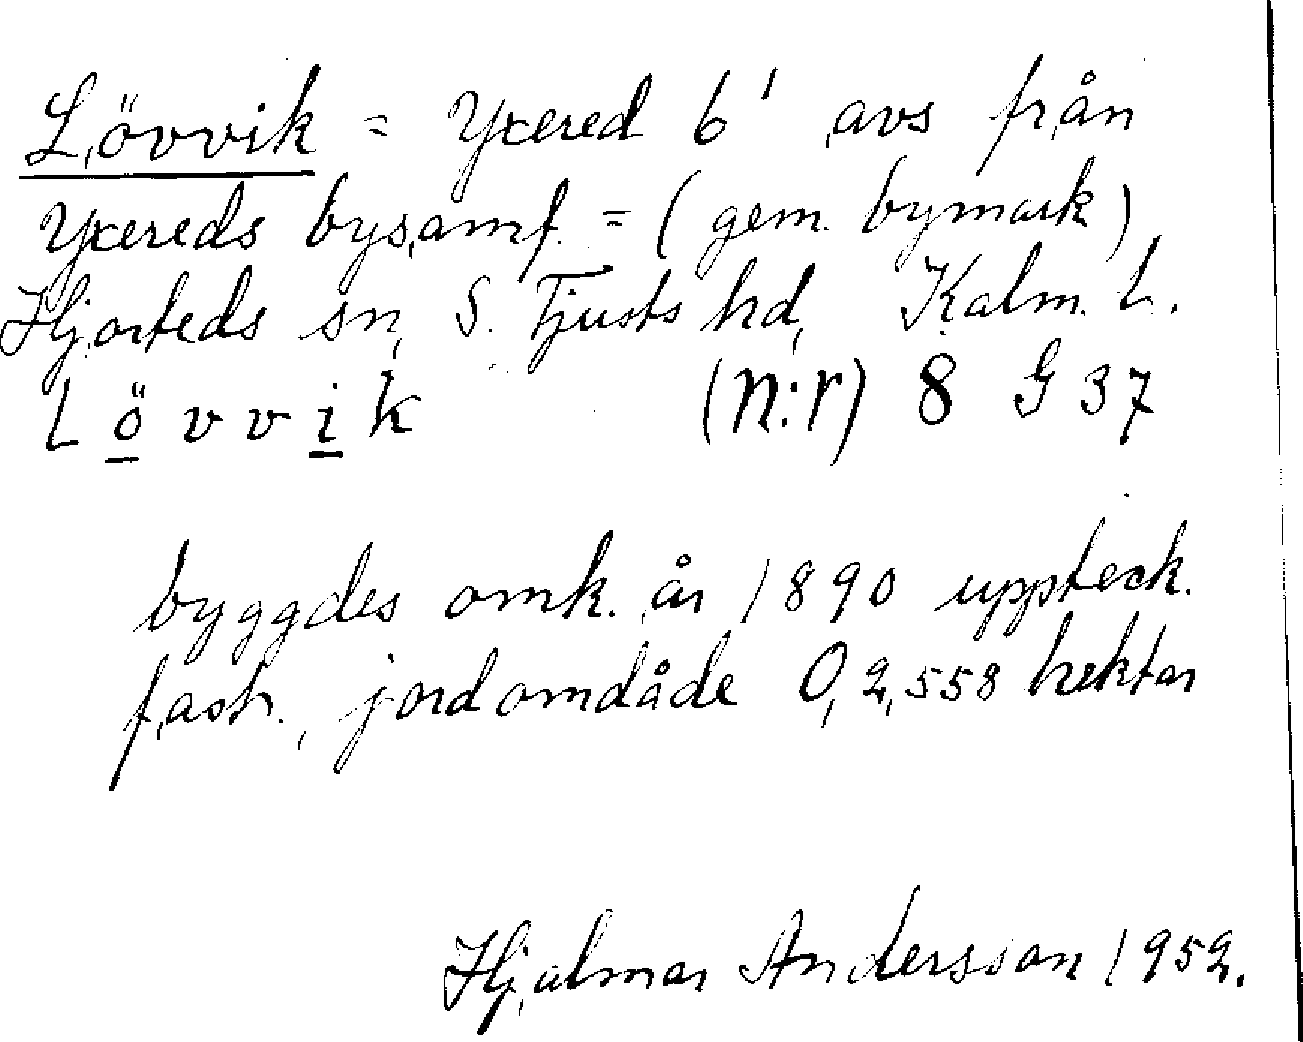 Lövvik = Yxered 6¹ avs från
Yxereds bysamf. = (gem. bymark)
Hjorteds sn, S. Tjusts hd, Kalm. L.
Lövvik (n:r) 8 G 37
byggdes omk. år 1890 uppteck.
fastr., jordomdåde 0,2,558 hektar
Hjalmar Andersson 1952.